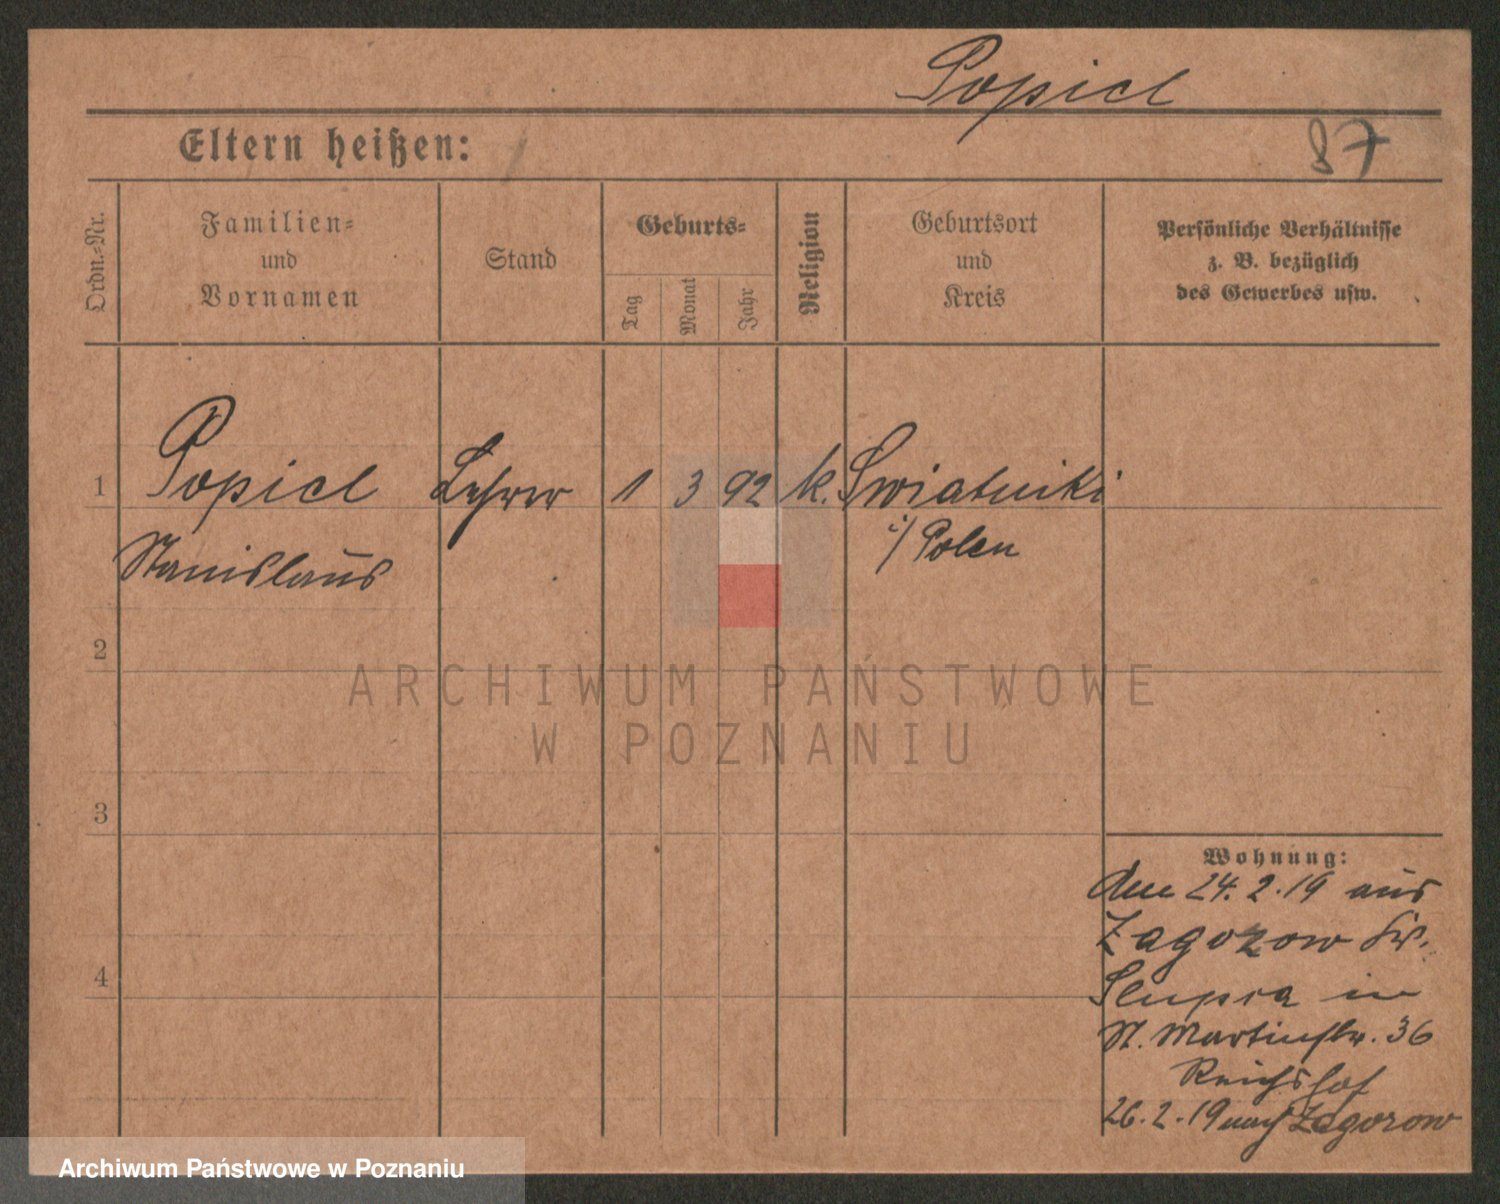 Popiel
Eltern heißen:
87
Ordn.-Nr.
Familien-
und
Vornamen
Stand
Geburts-
Tag
Monat
Jahr
Religion
Geburtsort
und
Kreis
Persönliche Verhältnisse
z. B. bezüglich
des Gewerbes usw.
1 Popiel Lehrer 1 3 92 k. Swiatniki
Stanislaus i/ Polen
2
3
4
Wohnung:
den 24.2.19 aus
Zagorow Kr.
Slupca in
St. Martinstr. 36
Reichshof
26.2.19 nach Zagorow
ARCHIWUM PAŃSTWOWE
W POZNANIU
Archiwum Państwowe w Poznaniu